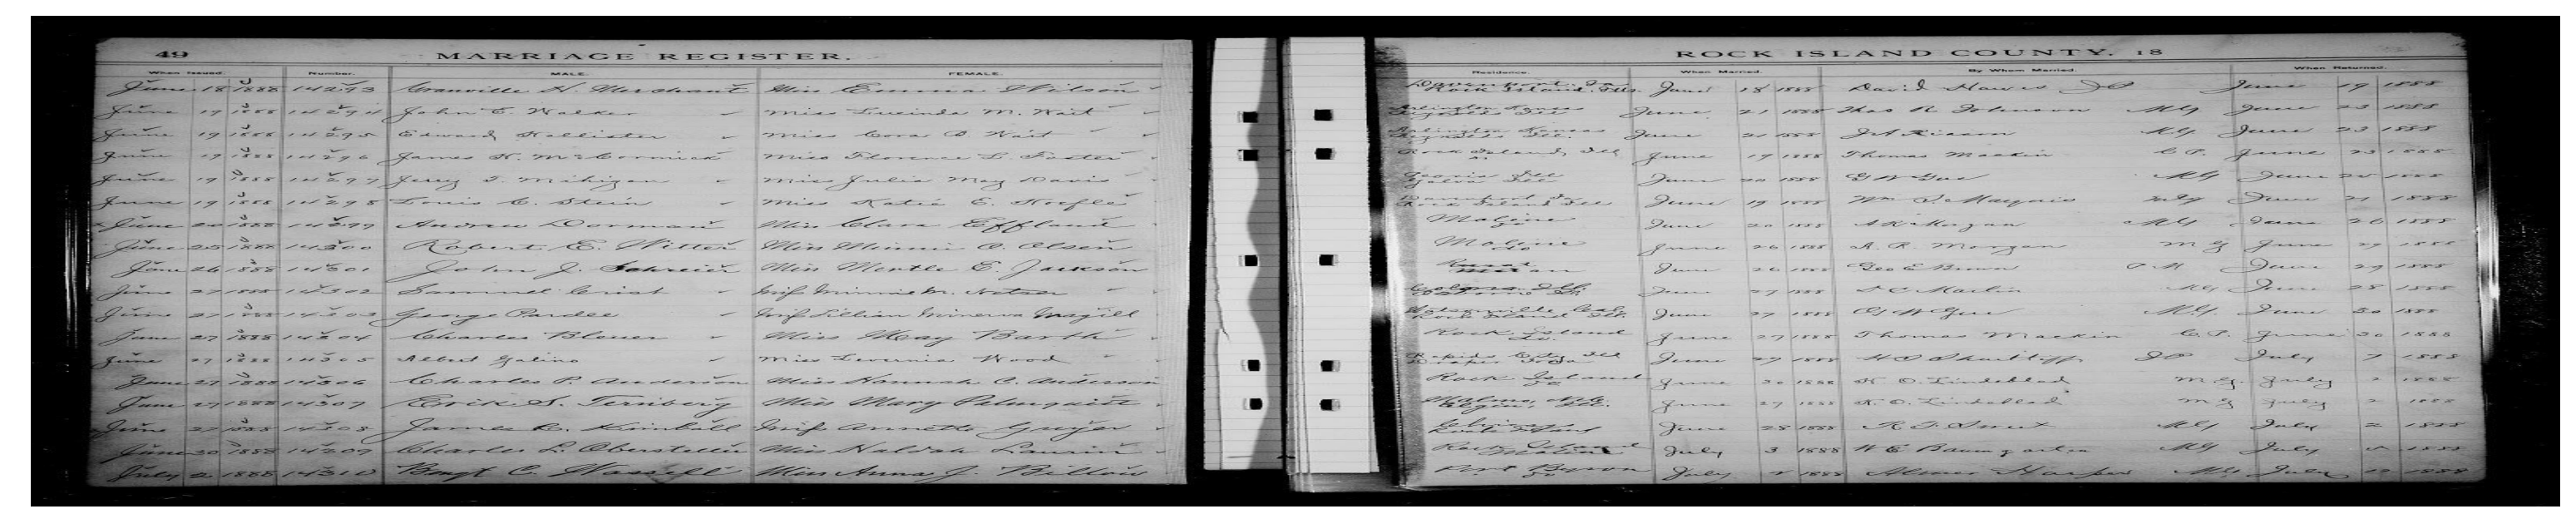 49 MARRIAGE REGISTER. ROCK ISLAND COUNTY. 18
When Issued. Number. MALE. FEMALE. Residence. When Married. By Whom Married. When Returned.
June 18 1888 14293 Granville N. Merchant Miss Emma Wilson Davenport Ia Rock Island Ills. June 18 1888 David Hawes JP June 19 1888
June 19 1888 14294 John E. Walker Miss Lucinda M. Wait Arlington Kansas Reynolds Ill June 21 1888 Thos R Johnson MG June 23 1888
June 19 1888 14295 Edward Hollister Miss Cora D. Wait Arlington Kansas Reynolds Ill June 21 1888 MG June 23 1888
June 19 1888 14296 James H. McCormick Miss Florence L. Foster Rock Island, Ill June 19 1888 Thomas Mackin C.P. June 23 1888
June 19 1888 14297 Jerry T. Mihigan Miss Julia May Davis Peoria Ill Ill June 20 1888 G W Gue MG June 25 1888
June 19 1888 14298 Louis C. Stein Miss Katie E. Hoefle Davenport Ia Rock Island Ill June 19 1888 Wm S Marquis MG June 21 1888
June 20 1888 14299 Andrew Dorman Miss Clara Effland Moline do June 20 1888 MG June 26 1888
June 25 1888 14300 Robert E. Witter Miss Minnie O. Olsen Moline do June 26 1888 A. R. Morgan M G June 27 1888
June 26 1888 14301 John J. Schreier Miss Myrtle E. Jackson Rural Milan June 26 1888 Geo E Brown June 27 1888
June 27 1888 14302 Samuel Crist Miss Minnie M. Colona Ill. June 27 1888 S C Martin MG June 28 1888
June 27 1888 14303 George Pardee Miss Lillian Minerva Magill Watsonville Cal. Rock Island Ill. June 27 1888 G W Gue M.G. June 30 1888
June 27 1888 14304 Charles Bleuer Miss May Barth Rock Island do. June 27 1888 Thomas Mackin C.P. June 30 1888
June 27 1888 14305 Albert Galino Miss Levernia Wood Rapids City Ill June 27 1888 JP July 7 1888
June 27 1888 14306 Charles P. Anderson Miss Hannah C. Anderson Rock Island do June 30 1888 K. O. Lindeblad M.G. July 2 1888
June 27 1888 14307 Erik S. Ternberg Miss Mary Palmquist Malmo, Neb. Ill. June 27 1888 K. O. Lindeblad M G July 2 1888
June 27 1888 14308 James Kimball Miss Annette Guyer June 28 1888 MG July 2 1888
June 30 1888 14309 Charles L. Oberstelle Miss Huldah Laurin Rock Island Moline July 3 1888 W E Baumgarten MG July 5 1888
July 2 1888 14310 Bengt C. Miss Anna J. Billow Port Byron do July 1888 Abner Harper MG July 1888